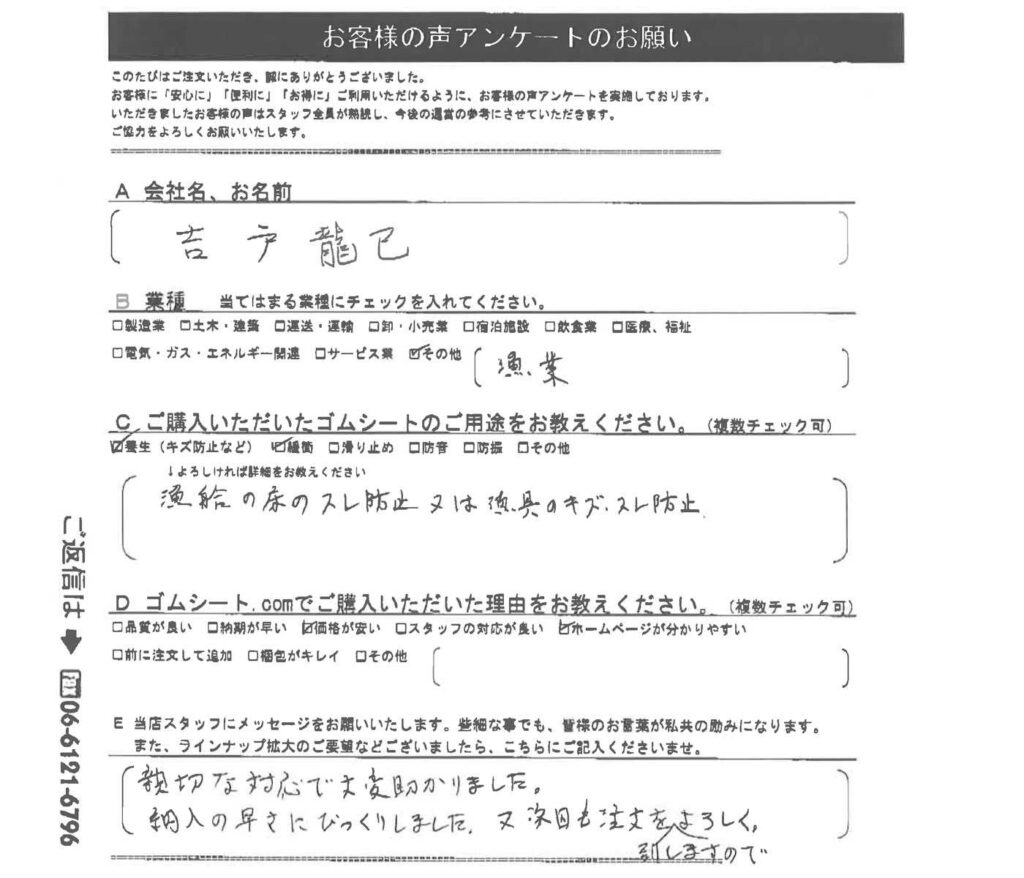 お客様の声アンケートのお願い
このたびはご注文いただき、誠にありがとうございました。
お客様に「安心に」「便利に」「お得に」ご利用いただけるように、お客様の声アンケートを実施しております。
いただきましたお客様の声はスタッフ全員が熟読し、今後の運営の参考にさせていただきます。
ご協力をよろしくお願いいたします。
A 会社名、お名前
吉戸龍己
B 業種 当てはまる業種にチェックを入れてください。
□製造業 □土木・建築 □運送・運輸 □卸・小売業 □宿泊施設 □飲食業 □医療、福祉
□電気・ガス・エネルギー関連 □サービス業 ☑その他 (漁業)
C ご購入いただいたゴムシートのご用途をお教えください。(複数チェック可)
☑養生(キズ防止など) ☑緩衝 □滑り止め □防音 □防振 □その他
↓よろしければ詳細をお教えください
漁船の床のスレ防止 又は漁具のキズ、スレ防止
D ゴムシート.comでご購入いただいた理由をお教えください。(複数チェック可)
□品質が良い □納期が早い ☑価格が安い □スタッフの対応が良い ☑ホームページが分かりやすい
□前に注文して追加 □梱包がキレイ □その他
E 当店スタッフにメッセージをお願いいたします。些細な事でも、皆様のお言葉が私共の励みになります。
また、ラインナップ拡大のご要望などございましたら、こちらにご記入くださいませ。
親切な対応で大変助かりました。
納入の早さにびっくりしました。又次回も注文をよろしく。
しますので
ご返信は➡FAX06-6121-6796